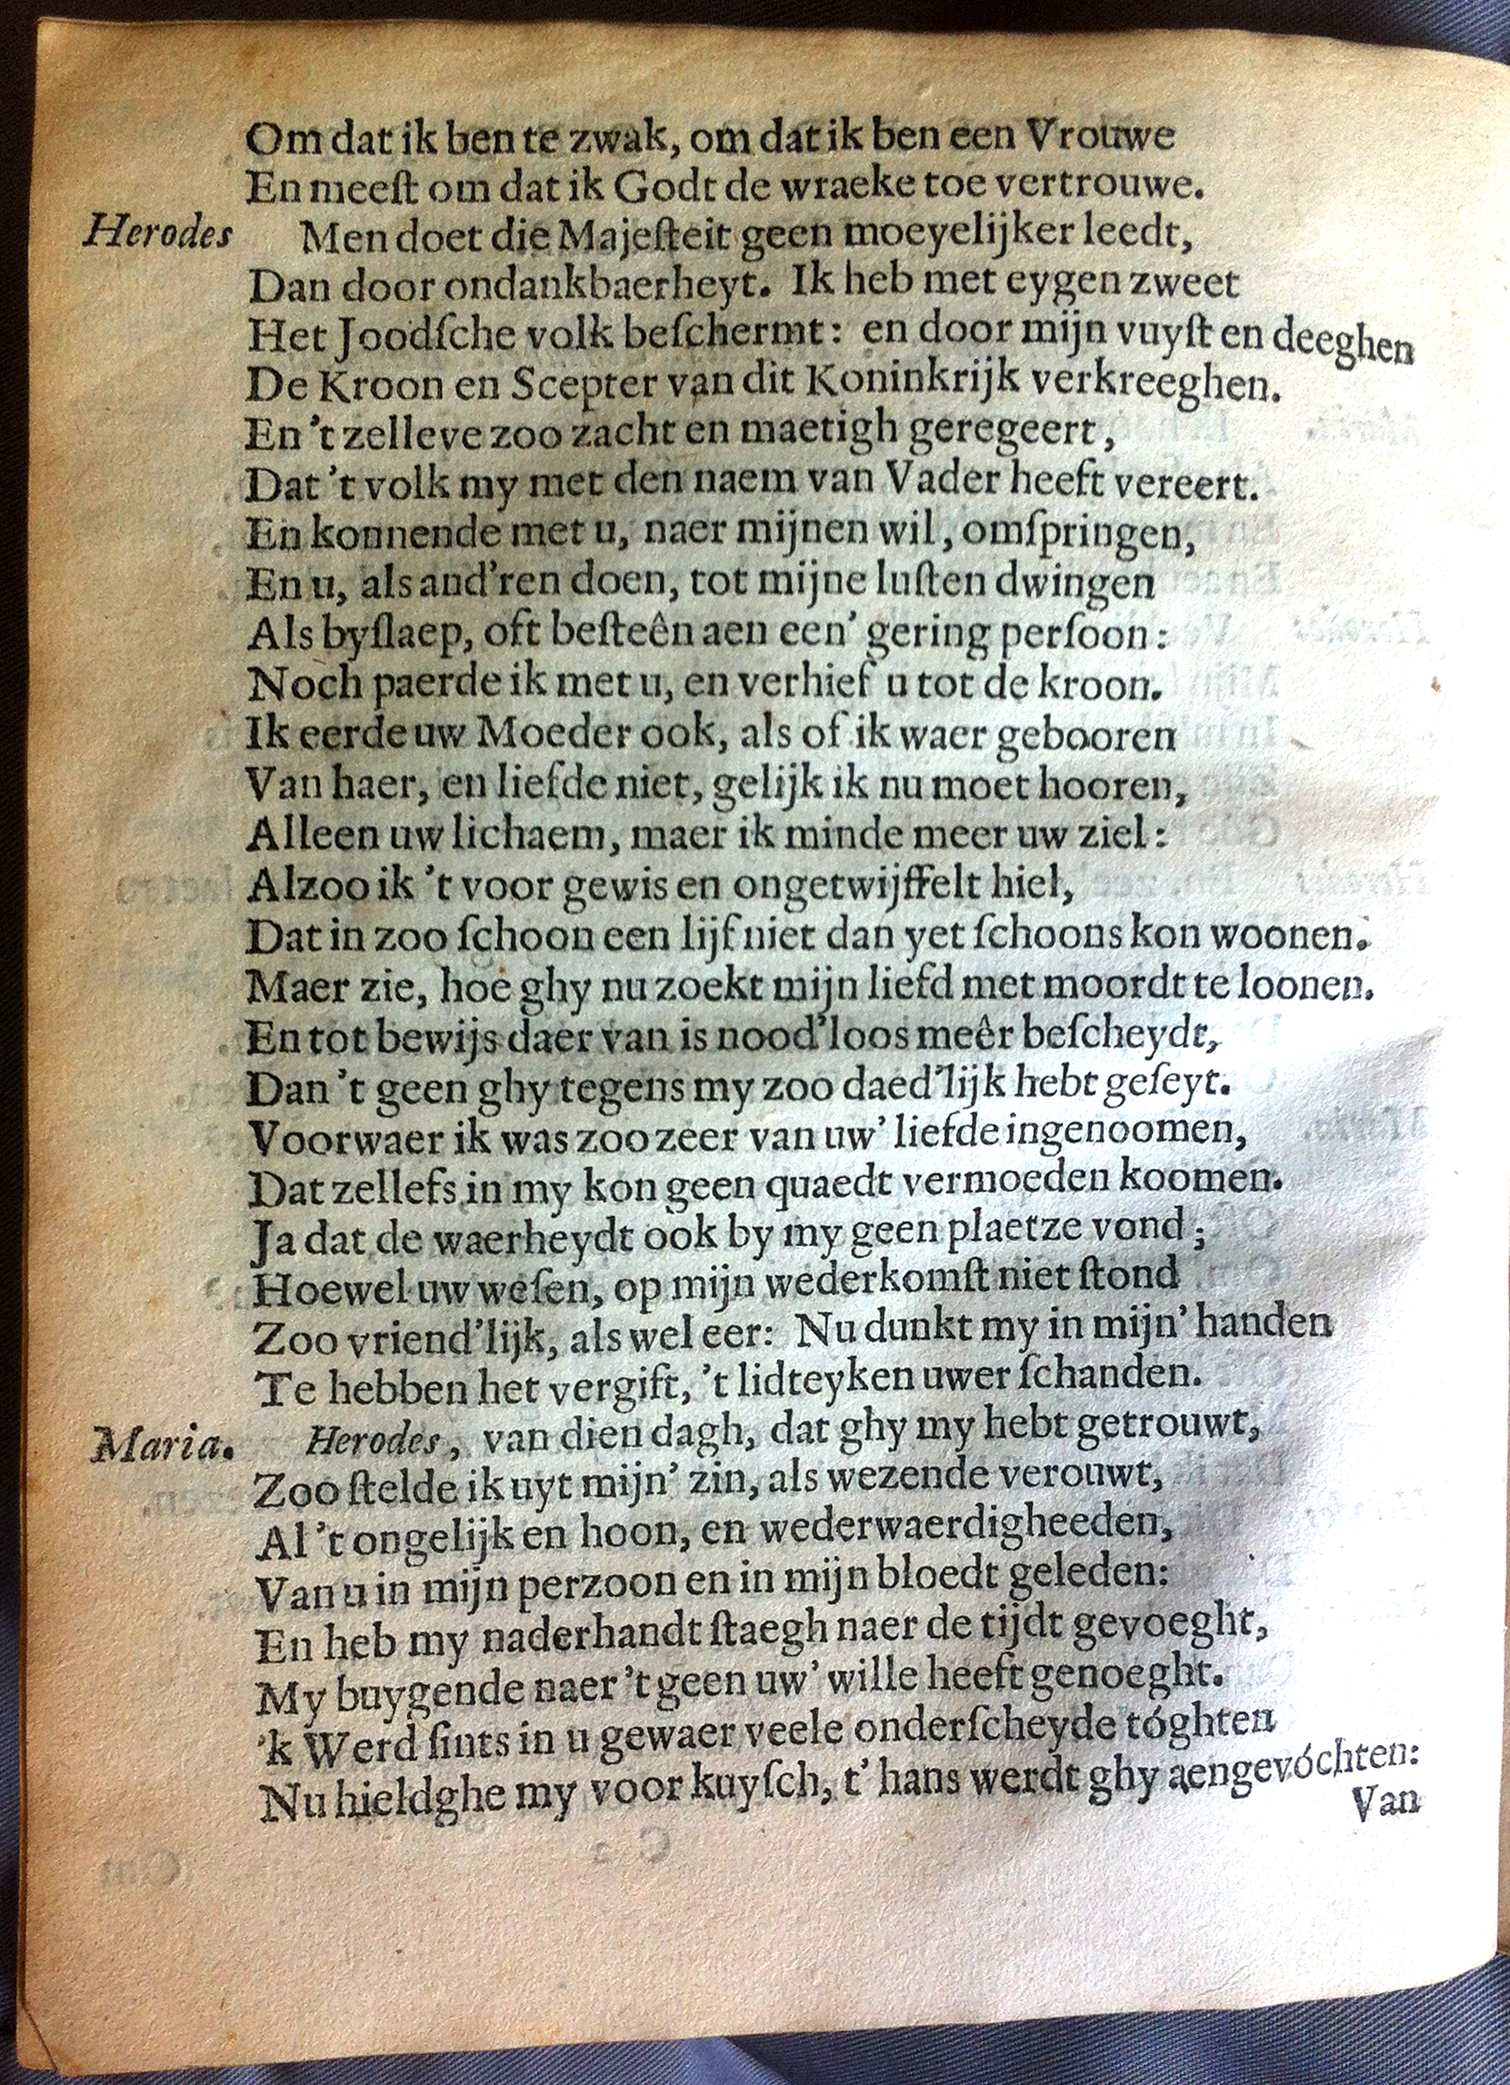 Om dat ik ben te zwak, om dat ik ben een Vrouwe
En meeſt om dat ik Godt de wraeke toe vertrouwe.
Herodes Men doet die Majeſteit geen moeyelijker leedt,
Dan door ondankbaerheyt. Ik heb met eygen zweet
Het Joodſche volk beſchermt: en door mijn vuyſt en deeghen
De Kroon en Scepter van dit Koninkrijk verkreeghen.
En 't zelleve zoo zacht en maetigh geregeert,
Dat 't volk my met den naem van Vader heeft vereert.
En konnende met u, naer mijnen wil, omſpringen,
En u, als and'ren doen, tot mijne luſten dwingen
Als byſlaep, oft beſteên aen een' gering perſoon:
Noch paerde ik met u, en verhief u tot de kroon.
Ik eerde uw Moeder ook, als of ik waer gebooren
Van haer, en liefde niet, gelijk ik nu moet hooren,
Alleen uw lichaem, maer ik minde meer uw ziel:
Alzoo ik 't voor gewis en ongetwijffelt hiel,
Dat in zoo ſchoon een lijf niet dan yet ſchoons kon woonen.
Maer zie, hoe ghy nu zoekt mijn liefd met moordt te loonen.
En tot bewijs daer van is nood'loos meêr beſcheydt,
Dan 't geen ghy tegens my zoo daed'lijk hebt geſeyt.
Voorwaer ik was zoo zeer van uw' liefde ingenoomen,
Dat zellefs in my kon geen quaedt vermoeden koomen.
Ja dat de waerheydt ook by my geen plaetze vond;
Hoewel uw weſen, op mijn wederkomſt niet ſtond
Zoo vriend'lijk, als wel eer: Nu dunkt my in mijn' handen
Te hebben het vergift, 't lidteyken uwer ſchanden.
Maria. Herodes, van dien dagh, dat ghy my hebt getrouwt,
Zoo ſtelde ik uyt mijn' zin, als wezende verouwt,
Al 't ongelijk en hoon, en wederwaerdigheeden,
Van u in mijn perzoon en in mijn bloedt geleden:
En heb my naderhandt ſtaegh naer de tijdt gevoeght,
My buygende naer 't geen uw' wille heeft genoeght.
'k Werd ſints in u gewaer veele onderſcheyde tóghten
Nu hieldghe my voor kuyſch, t' hans werdt ghy aengevóchten:
Van